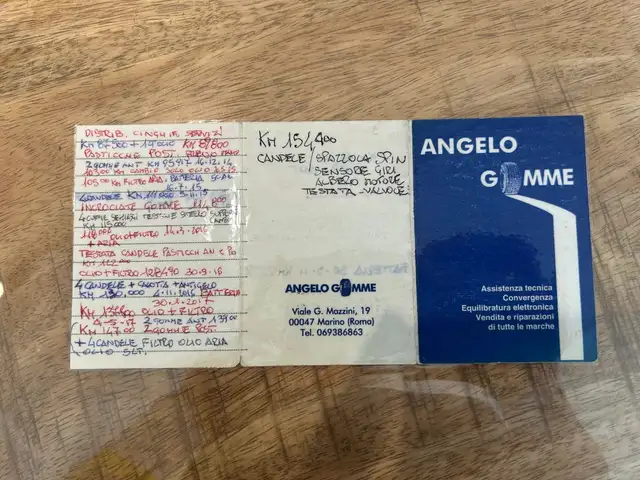 DISTRIB. CINGHIE SERVIZI
KM 87500 + OLIO KM 87800
PASTICCHE POST.
2 GOMME ANT KM 95917 16.12.14
KM CAMBIO SOLO OLIO
105000 KM FILTRO ARIA, BATTERIA
16.7.15
4 CANDELE KM
INCROCIATE GOMME 114,000
KM 115000
OLIO+FILTRO 14.3.2016
+ ARIA
TESTATA CANDELE PASTICCHI AN e Po
KM
OLIO + FILTRO 128490 30.9.16
4 CANDELE + CALOTTA + ANTIGELO
KM 130,000 4.11.2016 BATTERIA
30.1.2017
KM OLIO + FILTRO
2 GOMME ANT
KM 147,00 2 GOMME POST
+ 4 CANDELE FILTRO OLIO ARIA
OLIO
KM 154,400
CANDELE / SPAZZOLA SPIN
SENSORE GIRI
ALBERO MOTORE
TESTATA - VALVOLE
ANGELO GOMME
Viale G. Mazzini, 19
00047 Marino (Roma)
Tel. 069386863
ANGELO
GOMME
Assistenza tecnica
Convergenza
Equilibratura elettronica
Vendita e riparazioni
di tutte le marche